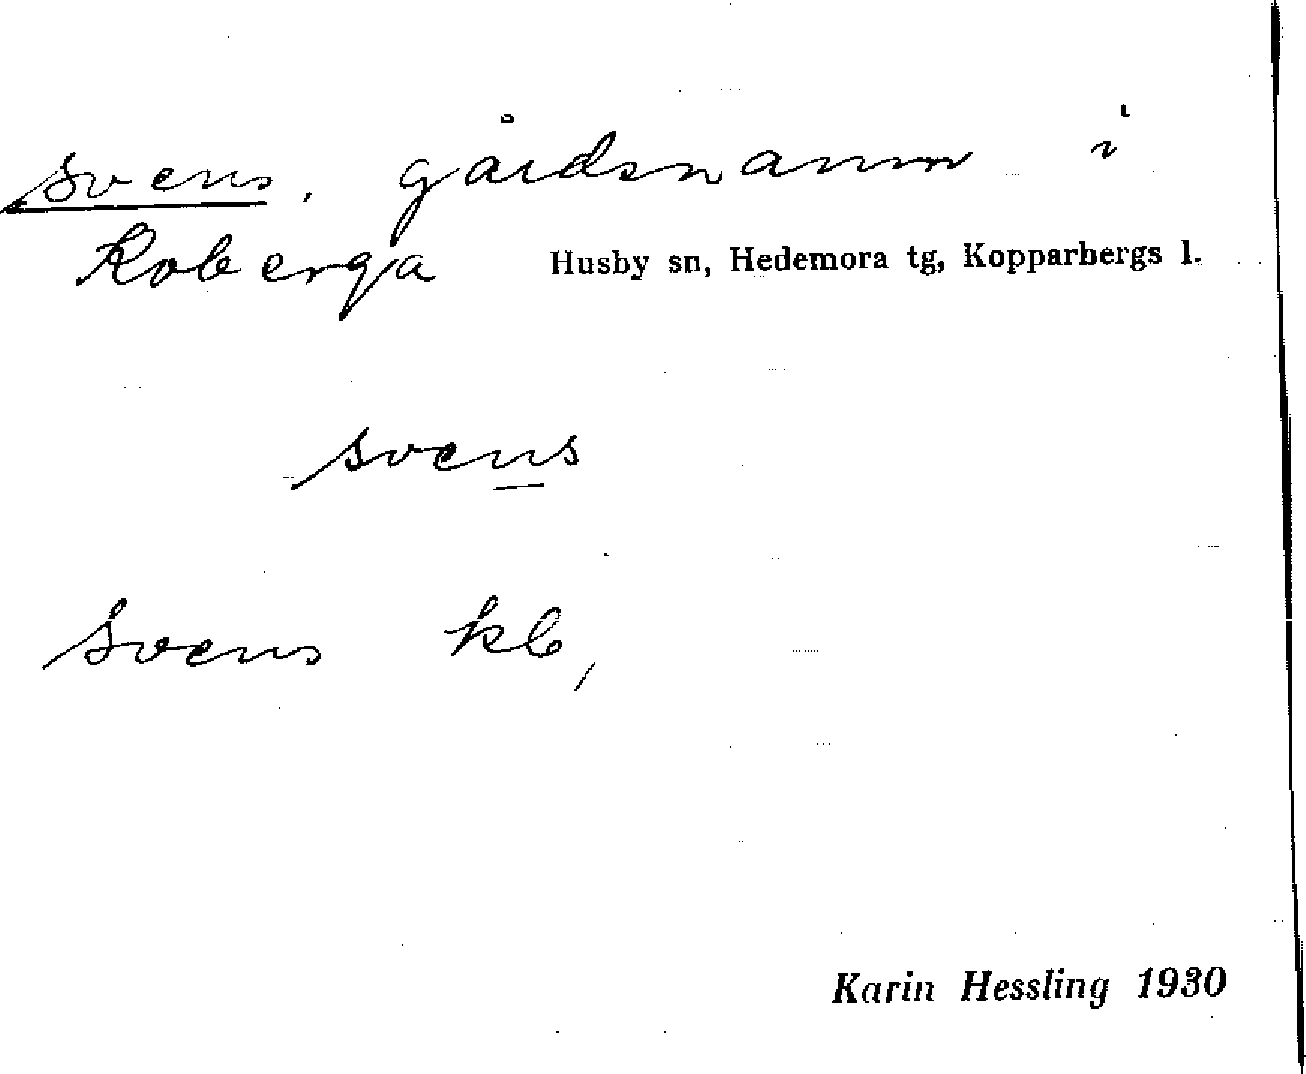 Svens, gårdsnamn i
Koberga Husby sn, Hedemora tg, Kopparbergs l.
svens
Svens kb,
Karin Hessling 1930